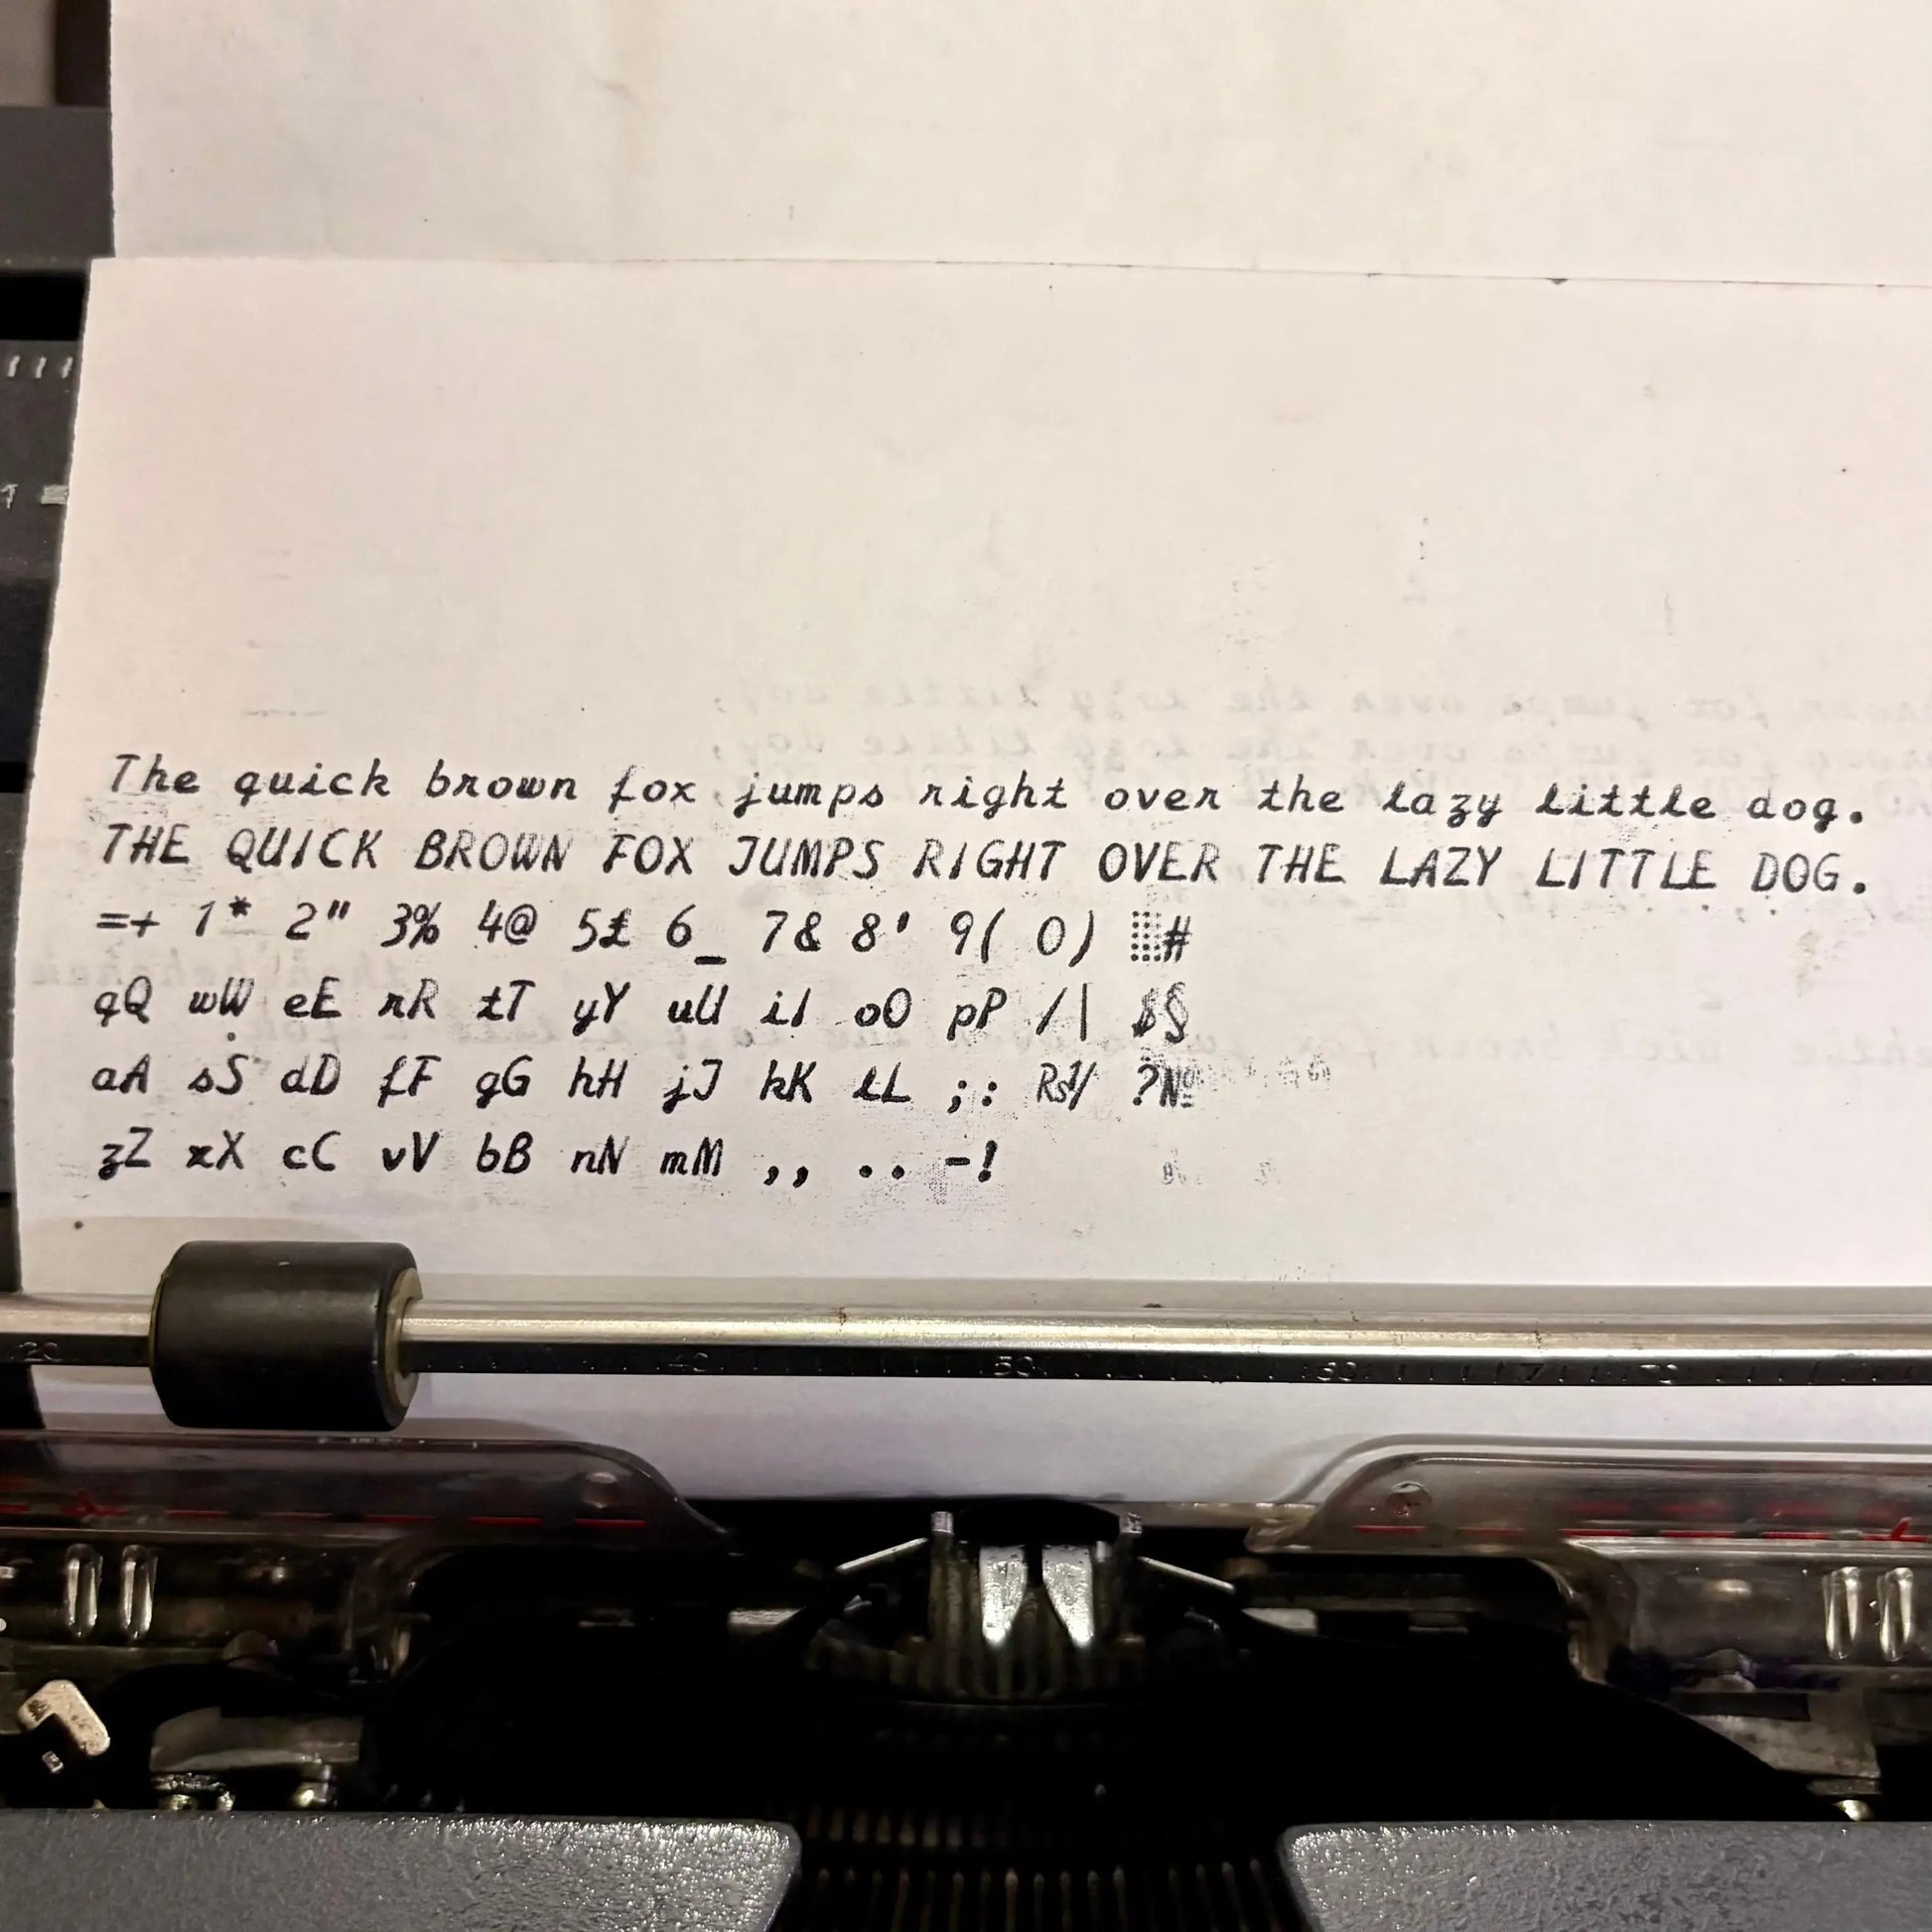 The quick brown fox jumps right over the lazy little dog.
THE QUICK BROWN FOX JUMPS RIGHT OVER THE LAZY LITTLE DOG.
=+ 1* 2" 3% 4@ 5£ 6_ 7& 8' 9( 0) ░#
qQ wW eE rR tT yY uU iI oO pP /| $§
aA sS dD fF gG hH jJ kK lL ;: ₨/ ?№
zZ xX cC vV bB nN mM ,, .. -!
20 40 50 60 70